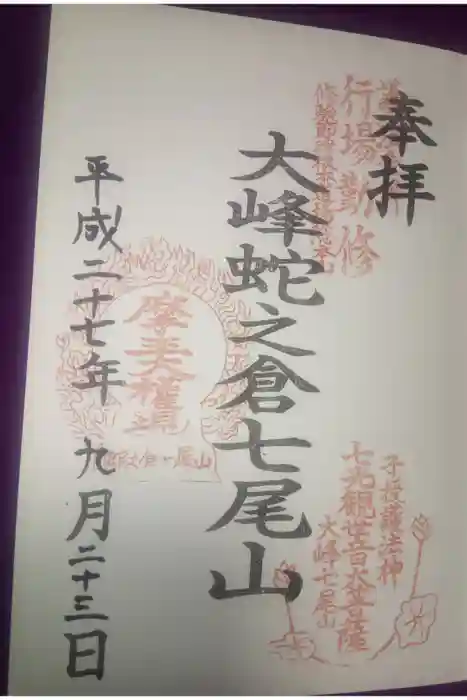 奉拝
行場勤修
大峰蛇之倉七尾山
子授護法神
七光観世音大菩薩
大峰七尾山
平成二十七年九月二十三日